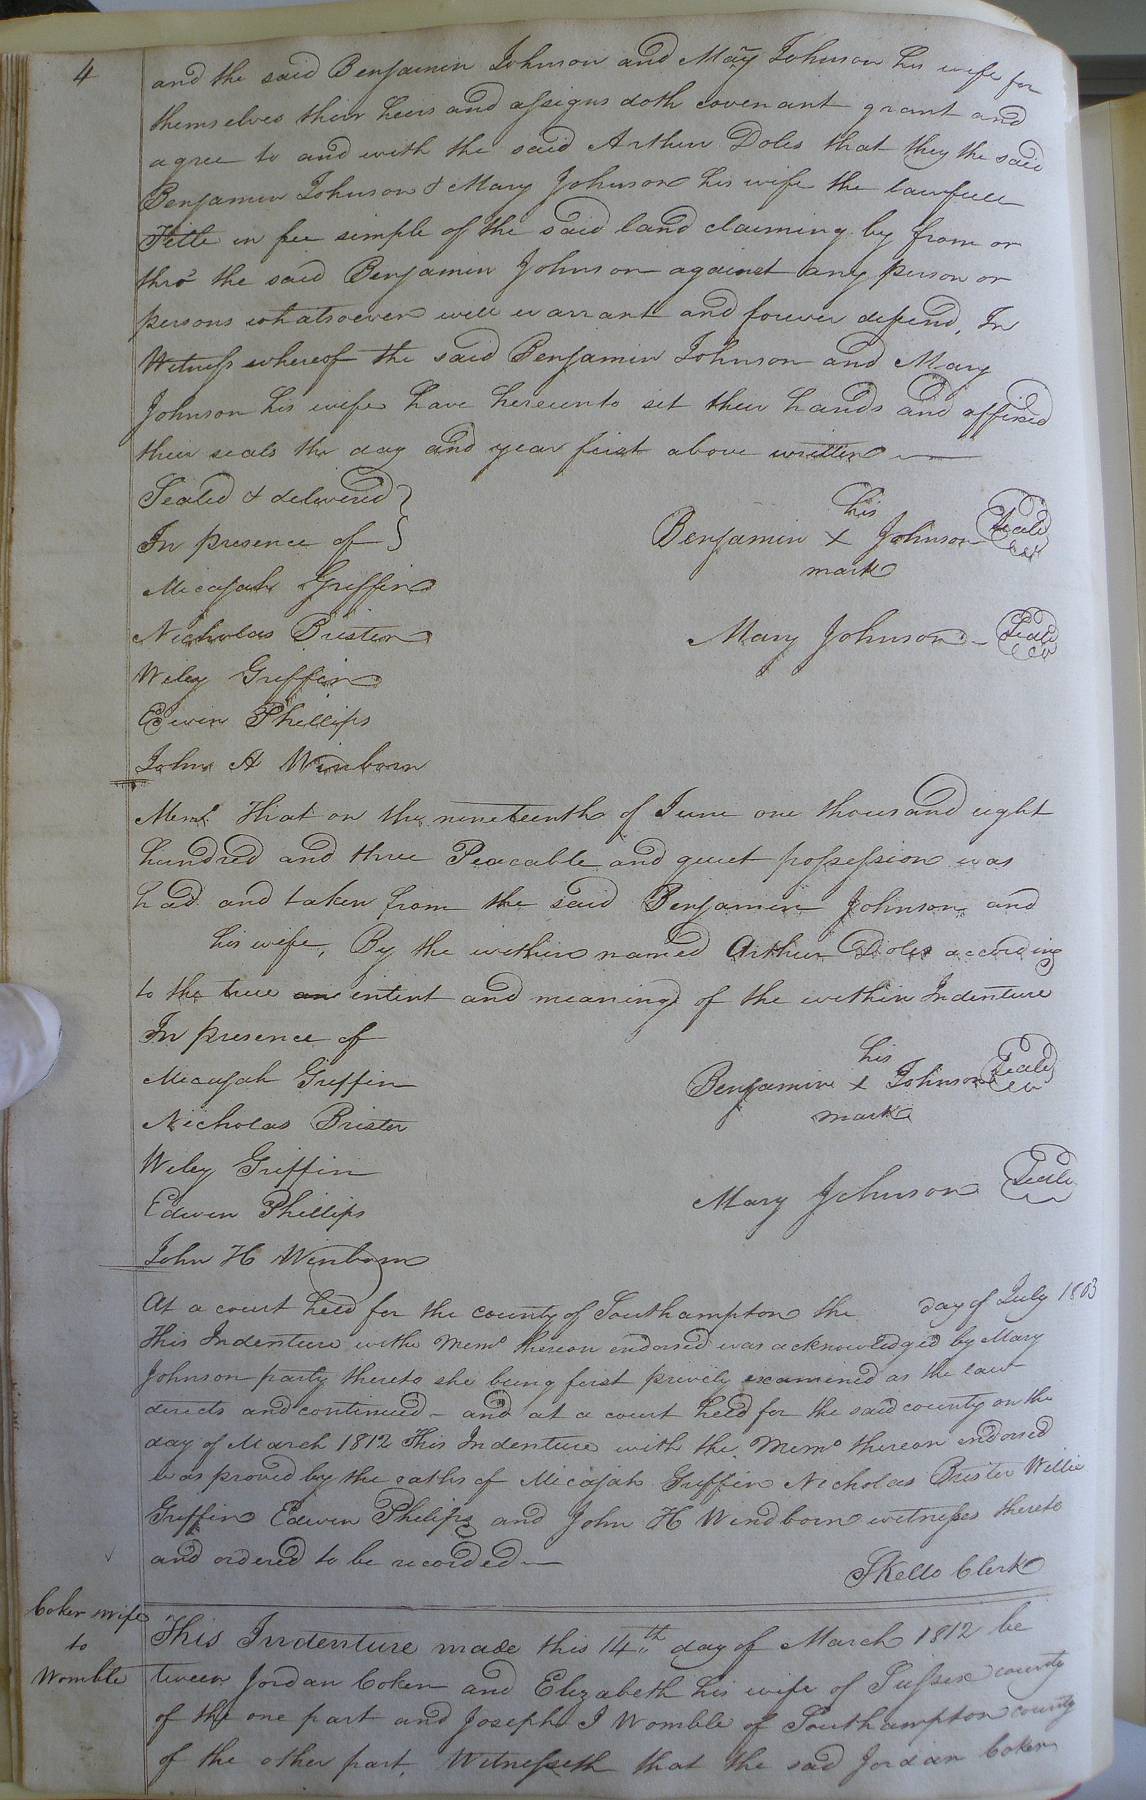 4
and the said Benjamin Johnson and Mary Johnson his wife for
themselves their heirs and assigns doth covenant grant and
agree to and with the said Arthur Doles that they the said
Benjamin Johnson & Mary Johnson his wife the lawfull
Title in fee simple of the said land claiming by from or
thro the said Benjamin Johnson against any person or
persons whatsoever will warrant and forever defend, In
Witness whereof the said Benjamin Johnson and Mary
Johnson his wife have hereunto set their hands and affixed
their seals the day and year first above written
Sealed & delivered
In presence of
his
Benjamin X Johnson Seal
mark
Micajah Griffin
Nicholas Brister
Mary Johnson Seal
Weley Griffin
Edwin Phillips
John H Winborn
Memo That on the nineteenth of June one thousand eight
hundred and three Peacable and quiet possession was
had and taken from the said Benjamin Johnson and
his wife, By the within named Arthur Doles according
to the true an intent and meaning of the within Indenture
In presence of
his
Micajah Griffin
Benjamin x Johnson Seal
mark
Nicholas Brister
Weley Griffin
Mary Johnson Seal
Edwin Phillips
John H Winborn
At a court held for the county of Southampton the day of July 1803
This Indenture with Memo thereon endorsed was acknowledged by Mary
Johnson party thereto she being first privily examined as the law
directs and continued - and at a court held for the said county on the
day of March 1812 This Indenture with the Memo thereon endorsed
was proved by the oaths of Micajah Griffin Nicholas Brister Willie
Griffin Edwin Philips and John H Windborn witnesses thereto
and ordered to be recorded
SKello Clerk
Coker wife
to
Womble
This Indenture made this 14th day of March 1812 be
tween Jordan Coker and Elizabeth his wife of Sussex county
of the one part and Joseph J Womble of Southampton county
of the other part, Witnesseth that the said Jordan Coker